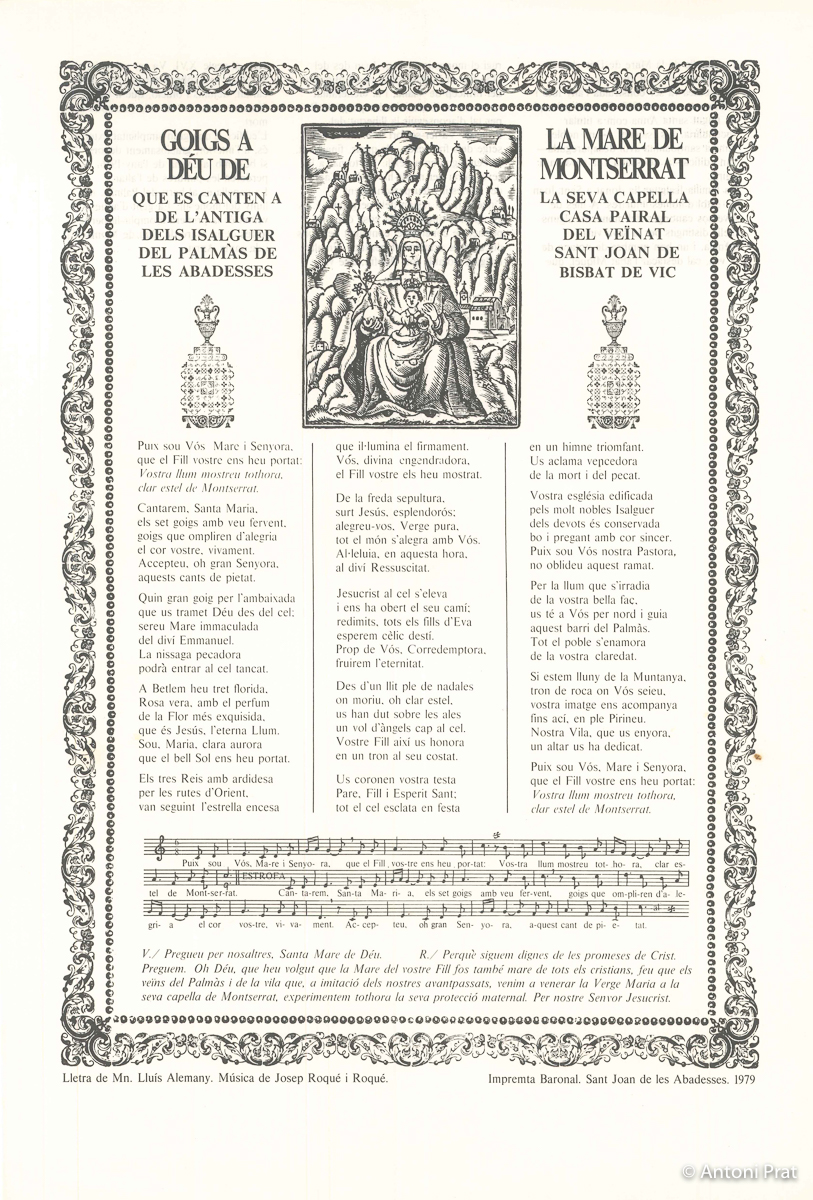 GOIGS A LA MARE DE
DÉU DE MONTSERRAT
QUE ES CANTEN A LA SEVA CAPELLA
DE L'ANTIGA CASA PAIRAL
DELS ISALGUER DEL VEÏNAT
DEL PALMÀS DE SANT JOAN DE
LES ABADESSES BISBAT DE VIC
Puix sou Vós Mare i Senyora,
que el Fill vostre ens heu portat:
Vostra llum mostreu tothora,
clar estel de Montserrat.
Cantarem, Santa Maria,
els set goigs amb veu fervent,
goigs que ompliren d'alegria
el cor vostre, vivament.
Accepteu, oh gran Senyora,
aquests cants de pietat.
Quin gran goig per l'ambaixada
que us tramet Déu des del cel;
sereu Mare immaculada
del diví Emmanuel.
La nissaga pecadora
podrà entrar al cel tancat.
A Betlem heu tret florida,
Rosa vera, amb el perfum
de la Flor més exquisida,
que és Jesús, l'eterna Llum.
Sou, Maria, clara aurora
que el bell Sol ens heu portat.
Els tres Reis amb ardidesa
per les rutes d'Orient,
van seguint l'estrella encesa
que il·lumina el firmament.
Vós, divina engendradora,
el Fill vostre els heu mostrat.
De la freda sepultura,
surt Jesús, esplendorós;
alegreu-vos, Verge pura,
tot el món s'alegra amb Vós.
Al·leluia, en aquesta hora,
al diví Ressuscitat.
Jesucrist al cel s'eleva
i ens ha obert el seu camí;
redimits, tots els fills d'Eva
esperem cèlic destí.
Prop de Vós, Corredemptora,
fruirem l'eternitat.
Des d'un llit ple de nadales
on moriu, oh clar estel,
us han dut sobre les ales
un vol d'àngels cap al cel.
Vostre Fill així us honora
en un tron al seu costat.
Us coronen vostra testa
Pare, Fill i Esperit Sant;
tot el cel esclata en festa
en un himne triomfant.
Us aclama vencedora
de la mort i del pecat.
Vostra església edificada
pels molt nobles Isalguer
dels devots és conservada
bo i pregant amb cor sincer.
Puix sou Vós nostra Pastora,
no oblideu aquest ramat.
Per la llum que s'irradia
de la vostra bella fac,
us té a Vós per nord i guia
aquest barri del Palmàs.
Tot el poble s'enamora
de la vostra claredat.
Si estem lluny de la Muntanya,
tron de roca on Vós seieu,
vostra imatge ens acompanya
fins ací, en ple Pirineu.
Nostra Vila, que us enyora,
un altar us ha dedicat.
Puix sou Vós, Mare i Senyora,
que el Fill vostre ens heu portat:
Vostra llum mostreu tothora,
clar estel de Montserrat.
Puix sou Vós, Ma-re i Senyo-ra, que el Fill vos-tre ens heu por-tat: Vos-tra llum mostreu tot-ho-ra, clar es-
ESTROFA
tel de Mont-ser-rat. Can-ta-rem, San-ta Ma-ri-a, els set goigs amb veu fer-vent, goigs que om-pli-ren d'a-le-
gri-a el cor vos-tre, vi-va-ment. Ac-cep-teu, oh gran Sen-yo-ra, a-quest cant de pi-e-tat.
V./ Pregueu per nosaltres, Santa Mare de Déu. R./ Perquè siguem dignes de les promeses de Crist.
Preguem. Oh Déu, que heu volgut que la Mare del vostre Fill fos també mare de tots els cristians, feu que els
veïns del Palmàs i de la vila que, a imitació dels nostres avantpassats, venim a venerar la Verge Maria a la
seva capella de Montserrat, experimentem tothora la seva protecció maternal. Per nostre Senyor Jesucrist.
Lletra de Mn. Lluís Alemany. Música de Josep Roqué i Roqué. Impremta Baronal. Sant Joan de les Abadesses. 1979
© Antoni Prat